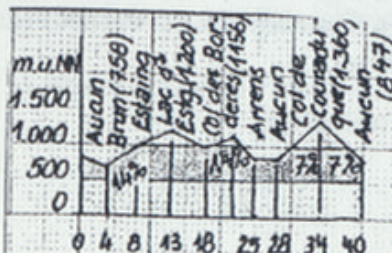 m.ü.NN
1.500
1.000
500
0
Aucun
Brun (758)
Estaing
Lac d'
Estg.(1.200)
Col des Bor-
deres (1156)
Arrens
Aucun
Col de
Couradu
que (1.360)
Aucun
(847)
14% 14% 7% 7%
0 4 8 13 18 25 28 34 40